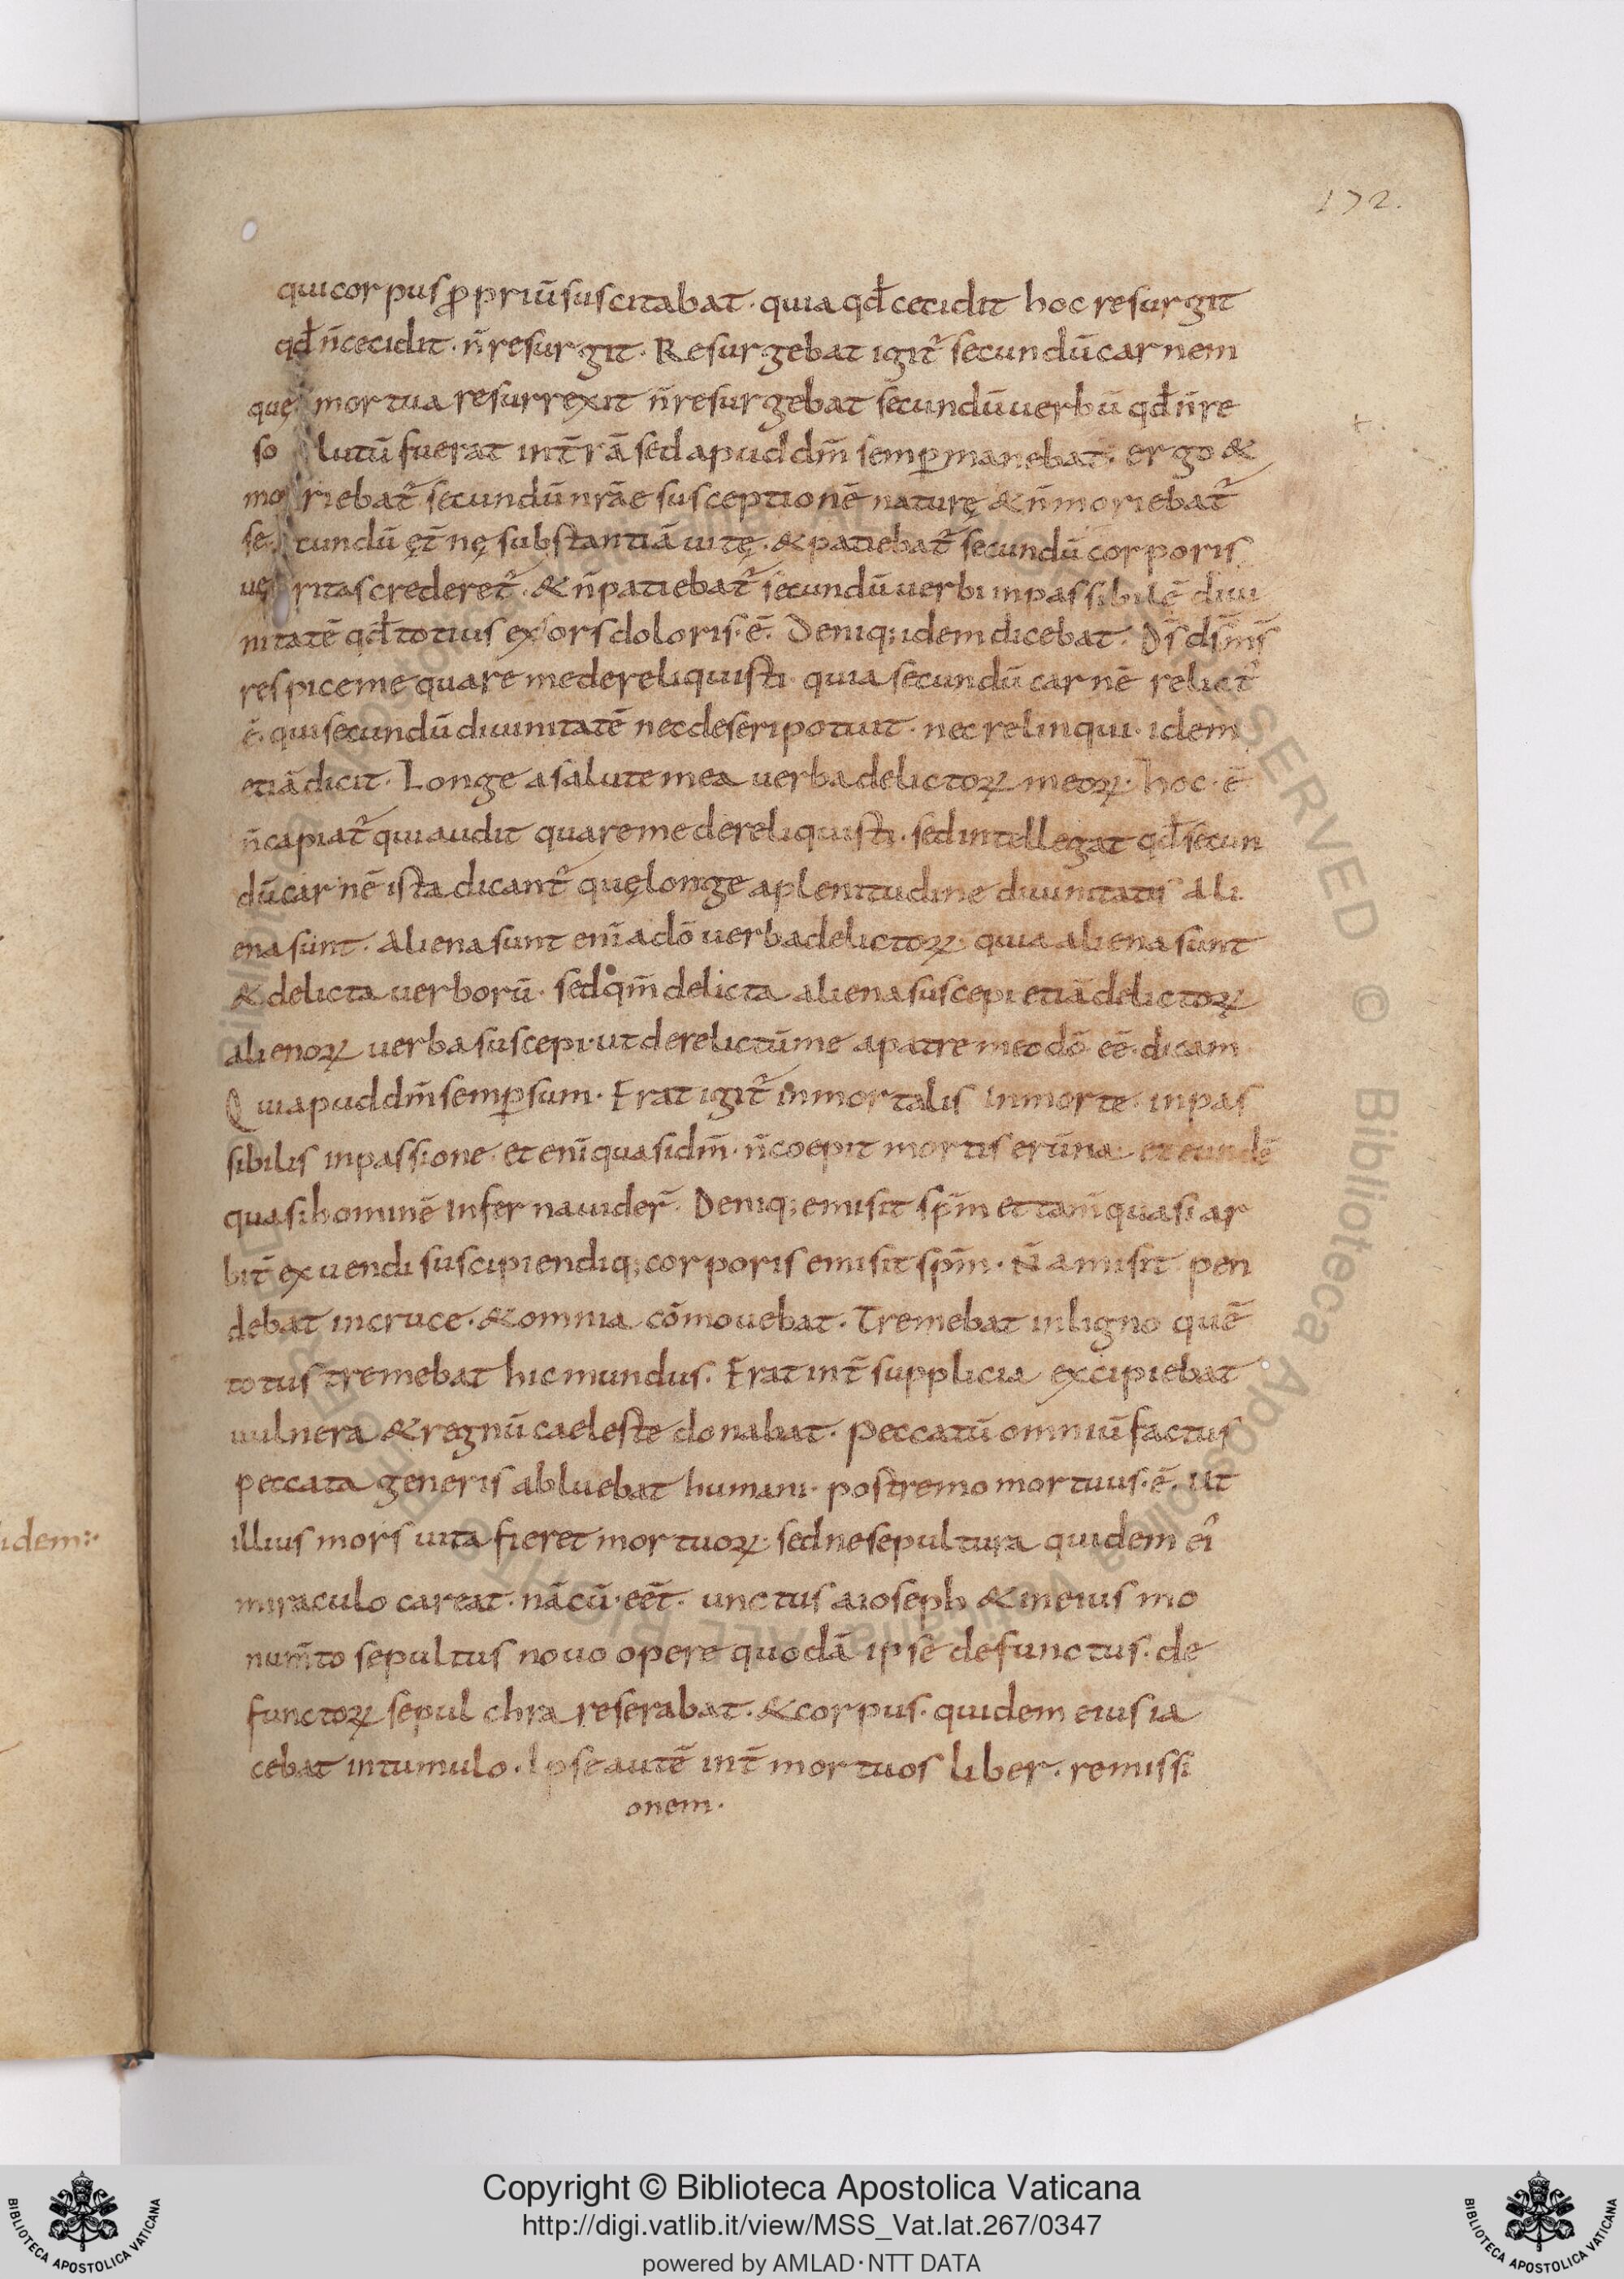 172.
qui corpus ꝓprıū suscitabat · quia qđ cecidit hoc resurgit
qđ n̄ cecidit · n̄ resurgit · Resurgebat igit᷑ secundū carnem
quę mortua resurrexit n̄ resurgebat secundū uerbū qđ n̄ re
so lutū fuerat in t̄rā sed apud dm̄ semꝑ manebat · ergo &
mo riebat᷑ secundū nrāe susceptionē naturę & n̄ moriebat᷑
se cundū ęt̄nę substantiā uitę · & patiebat᷑ secundū corporis
ue ritas crederet᷑ · & n̄ patiebat᷑ secundū uerbi inpassibilē diui
nitatē qđ totius exsors doloris · ē · Deniq; idem dicebat · Ds̄ ds̄ ms̄
respice me quare me dereliquisti · quia secundū carnē relict᷑
ē · qui secundū diuinitatē nec deseri potuit · nec relinqui · idem
etiā dicit · Longe a salute mea uerba delictoꝝ meoꝝ · hoc · ē
n̄ capiat᷑ qui audit quare me dereliquisti · sed intellegat qđ secun
dū carnē ista dicant᷑ quę longe a plenitudine diuinitatis ali
ena sunt · aliena sunt enī a dō uerba delictoꝝ quia aliena sunt
& delicta uerborū · sed qm̄ delicta aliena suscepi etiā delictoꝝ
alienoꝝ uerba suscepi · ut derelictū me a patre meo dō eē · dicam
Qui apud dm̄ semꝑ sum · Erat igit᷑ inmortalis in morte · inpas
sibilis in passione · et enī quasi dm̄ · n̄ coepit mortis erūna · et eundē
quasi hominē inferna uider̄ · Deniq; emisit spm̄ et tam̄ quasi ar
bit̄ exuendi suscipiendiq; corporis emisit spm̄ · N̄ amisit pen
debat in cruce · & omnia cōmouebat · Tremebat in ligno quē
totus tremebat hic mundus · Erat int̄ supplicia excipiebat
uulnera & regnū caeleste donabat · peccatū omniū factus
peccata generis abluebat humani · postremo mortuus · ē · ut
illius mors uita fieret mortuoꝝ · sed ne sepultura quidem ei᷒
miraculo careat · nā cū · eēt · unctus a ioseph & in eius mo
num̄to sepultus nouo opere quodā ipse defunctus · de
functoꝝ sepulchra reserabat · & corpus · quidem eius ia
cebat in tumulo · Ipse autē int̄ mortuos liber · remissi
onem ·
idem :·
Copyright © Biblioteca Apostolica Vaticana
http://digi.vatlib.it/view/MSS_Vat.lat.267/0347
powered by AMLAD · NTT DATA
BIBLIOTECA APOSTOLICA VATICANA
BIBLIOTECA APOSTOLICA VATICANA